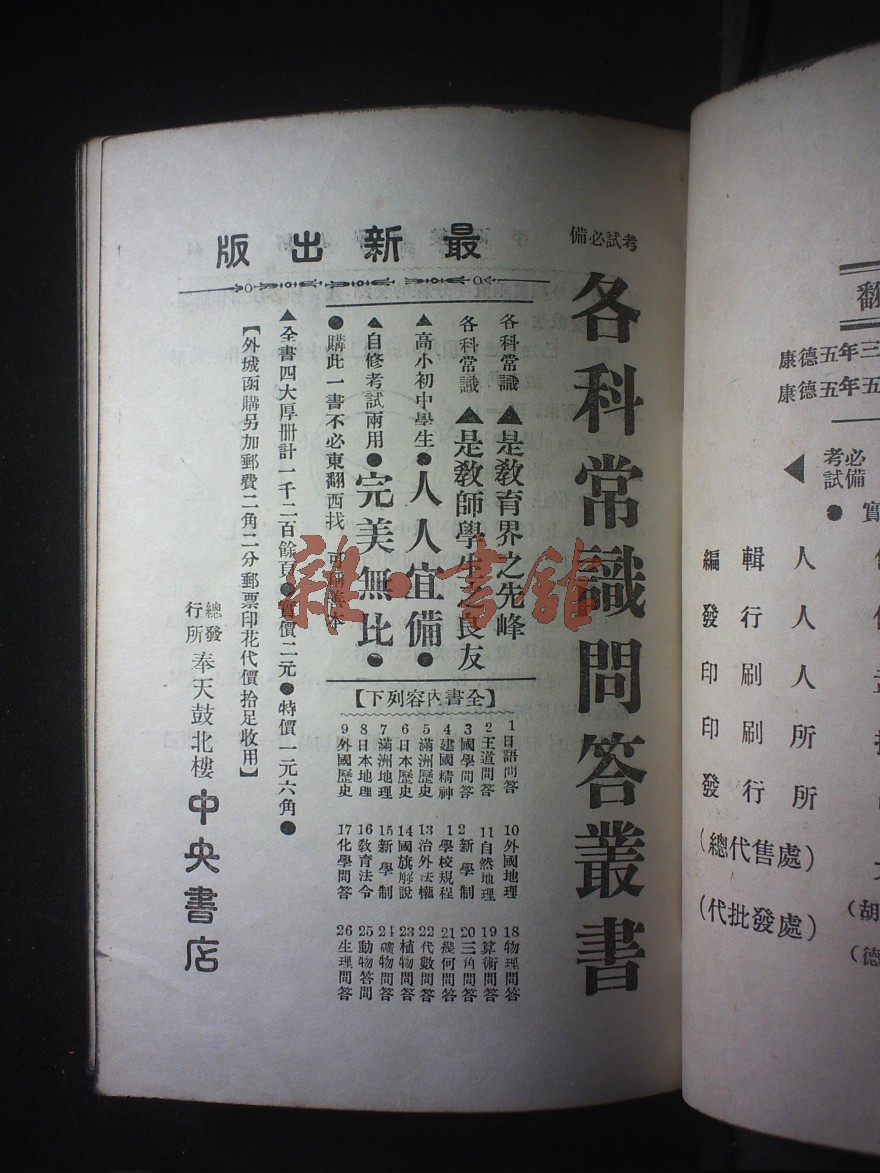 考試必備
各科常識問答叢書
最新出版
各科常識▲是敎育界之先峰
各科常識▲是敎師學生之良友
▲高小初中學生●人人宜備●
▲自修考試兩用●完美無比●
●購此一書不必東翻西找 可稱善本
▲全書四大厚册計一千二百餘頁●實價二元●特價一元六角●
【外城函購另加郵費二角二分郵票印花代價拾足收用】
總發行所 奉天鼓北樓 中央書店
【全書內容列下】
1 日語問答
2 王道問答
3 國學問答
4 建國精神
5 滿洲歷史
6 日本歷史
7 滿洲地理
8 日本地理
9 外國歷史
10 外國地理
11 自然地理
2 新學制
1 學校規程
13 治外法權
14 國旗解說
15 新學制
16 敎育法令
17 化學問答
18 物理問答
19 算術問答
20 三角問答
21 幾何問答
22 代數問答
23 植物問答
24 礦物問答
25 動物答問
26 生理問答
雜·書館
翻
康德五年三
康德五年五
考試必備
◀ ● 實
編輯人
發行人
印刷人
印刷所
發行所
(總代售處)
(代批發處)
(胡
(德